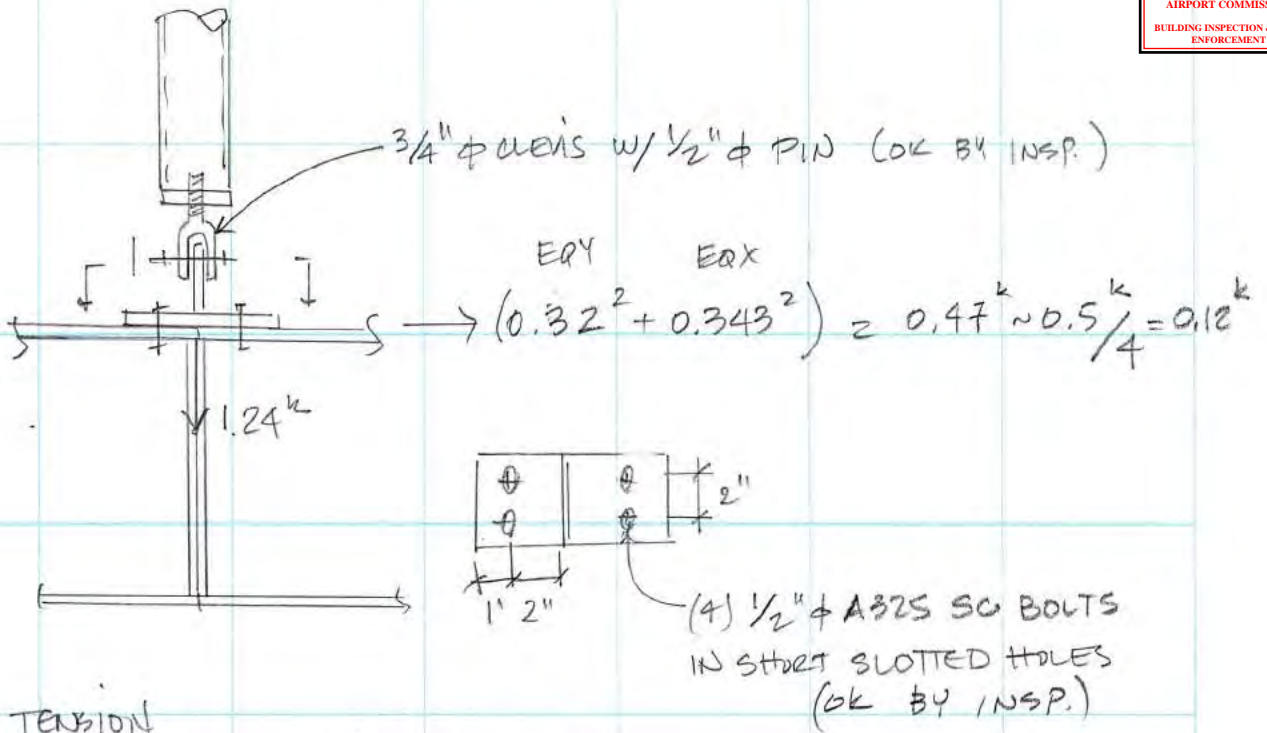 AIRPORT COMMISS
BUILDING INSPECTION
ENFORCEMENT
3/4" ϕ CLEVIS W/ 1/2" ϕ PIN (OK BY INSP.)
EQY EQX
(0.32² + 0.343²) = 0.47ᵏ ~ 0.5ᵏ/4 = 0.12ᵏ
1
1.24ᵏ
2"
1" 2"
(4) 1/2" ϕ A325 SC BOLTS
IN SHORT SLOTTED HOLES
(OK BY INSP.)
TENSION